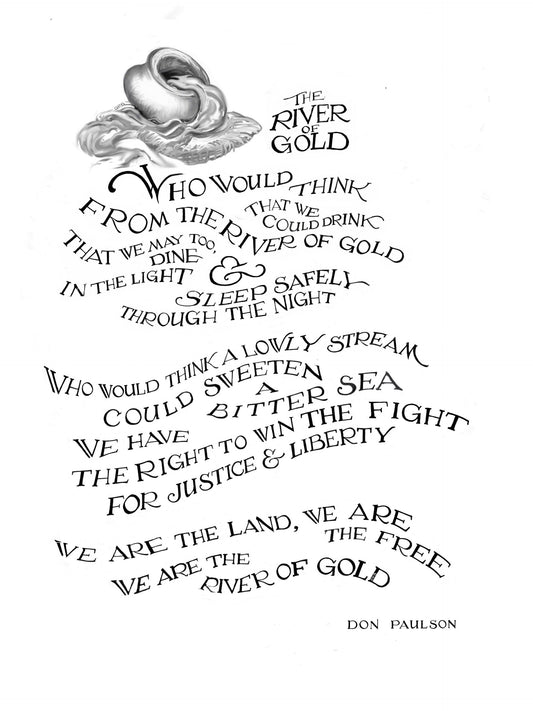 THE
RIVER
OF
GOLD
WHO WOULD THINK
THAT WE
COULD DRINK
FROM THE RIVER OF GOLD
THAT WE MAY TOO,
DINE
IN THE LIGHT &
SLEEP SAFELY
THROUGH THE NIGHT
WHO WOULD THINK A LOWLY STREAM
COULD SWEETEN
A
BITTER SEA
WE HAVE
THE RIGHT TO WIN THE FIGHT
FOR JUSTICE & LIBERTY
WE ARE THE LAND, WE ARE
THE FREE
WE ARE THE
RIVER OF GOLD
DON PAULSON